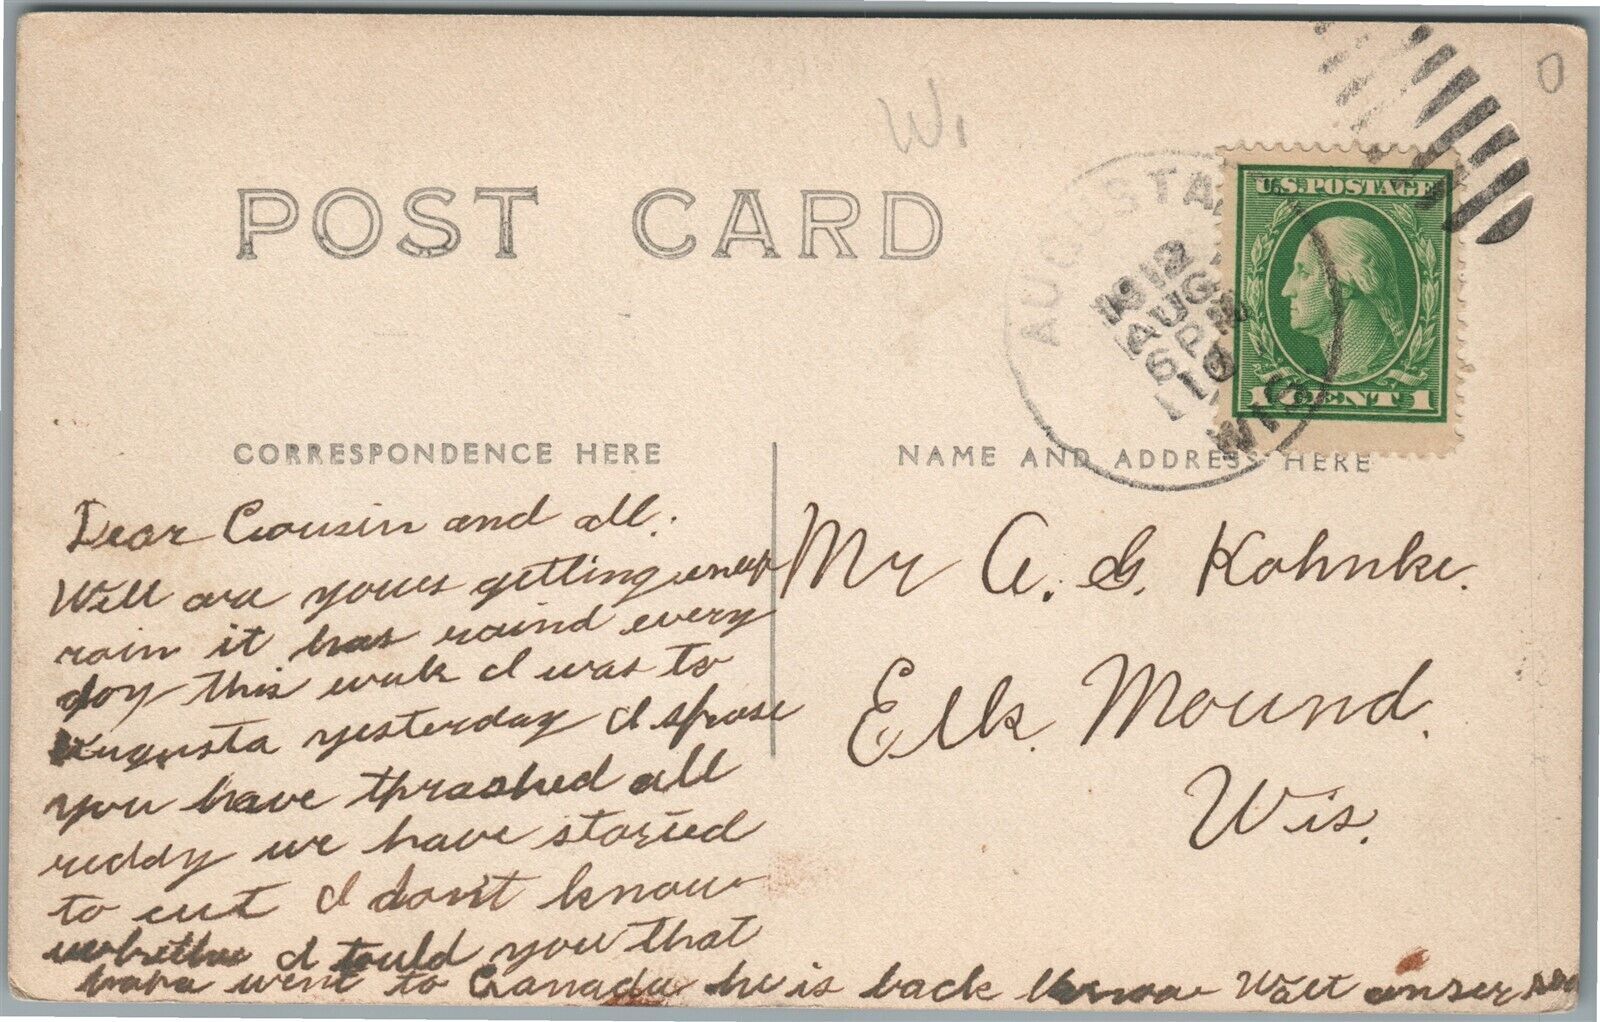 W.
0
POST CARD
AUGUSTA
WIS
1912
AUG
6 PM
U.S.POSTAGE
1 CENT 1
CORRESPONDENCE HERE
NAME AND ADDRESS HERE
Dear Cousin and all.
Well are youes getting enup
rain it has raind every
day this weak I was to
Augusta yesterday I spose
you have thrashed all
reddy we have started
to cut I dont know
whether I tould you that
went to Canada he is back now Walt
Mr A. G. Kohnke.
Elk Mound.
Wis.